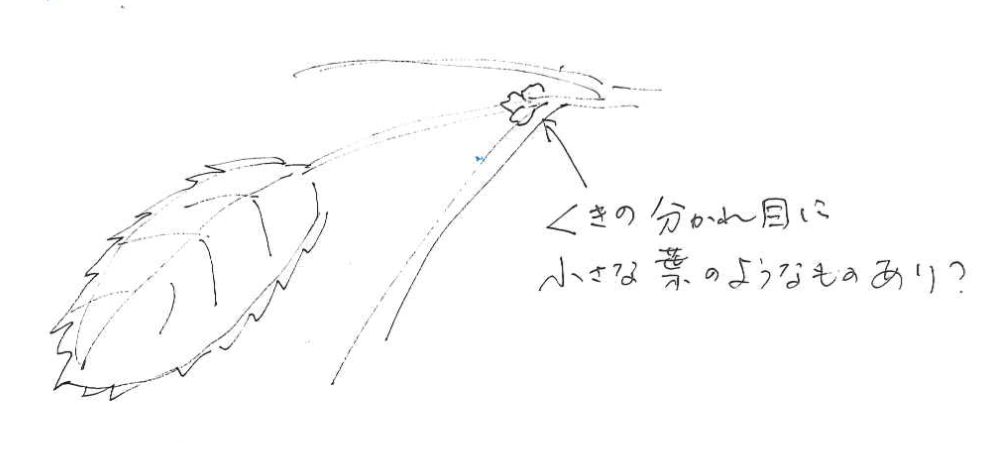 くきの分かれ目に
小さな葉のようなものあり?